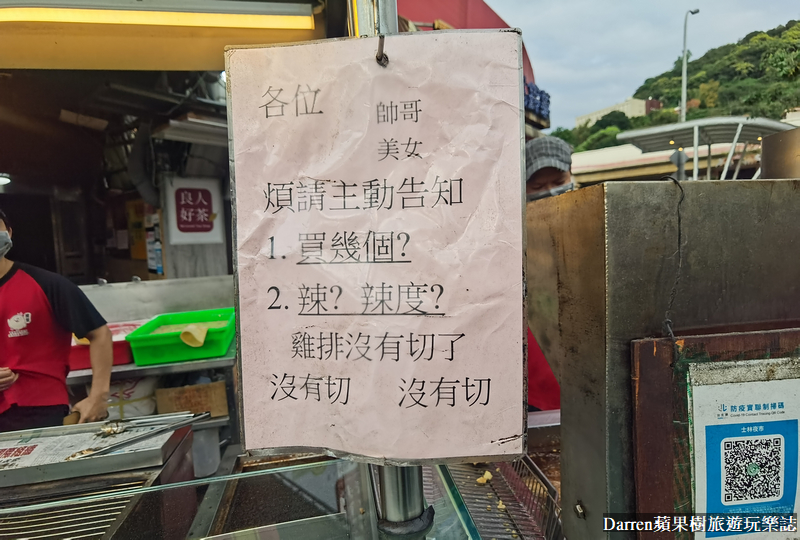 各位 帥哥
美女
煩請主動告知
1. 買幾個?
2. 辣? 辣度?
雞排沒有切了
沒有切 沒有切
良人
好茶
防疫實聯制掃碼
士林夜市
Darren蘋果樹旅遊玩樂誌